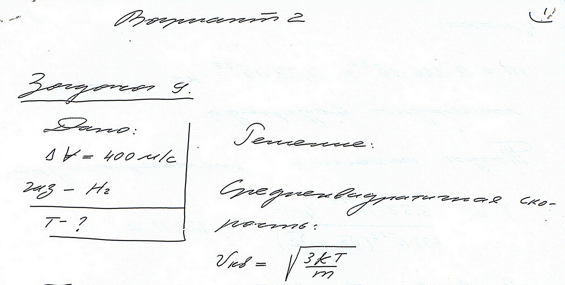 Вариант 2
Задача 9.
Дано:
Δv = 400 м/с
газ – H₂
T – ?
Решение:
Среднеквадратичная ско-
рость:
vкв = √(3kT/m)